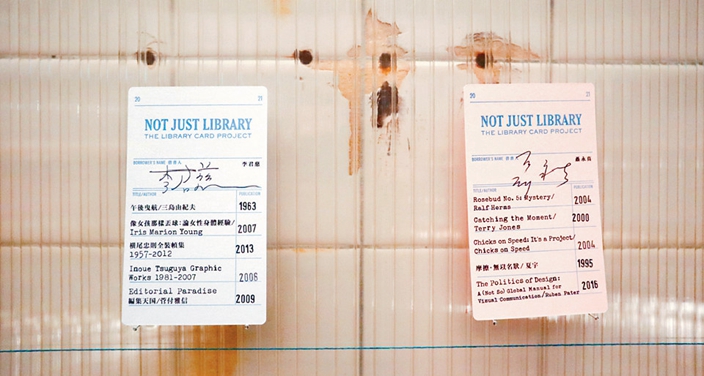 20 21
NOT JUST LIBRARY
THE LIBRARY CARD PROJECT
BORROWER'S NAME 借書人 李君慈
TITLE/AUTHOR PUBLICATION
午後曳航/三島由紀夫 1963
像女孩那樣丟球:論女性身體經驗/
Iris Marion Young 2007
橫尾忠則全裝幀集
1957-2012 2013
Inoue Tsuguya Graphic
Works 1981-2007 2008
Editorial Paradise
編集天国/菅付雅信 2009
20 21
NOT JUST LIBRARY
THE LIBRARY CARD PROJECT
BORROWER'S NAME 借書人 聶永真
TITLE/AUTHOR PUBLICATION
Rosebud No. 5: Mystery/
Ralf Herms 2004
Catching the Moment/
Terry Jones 2000
Chicks on Speed: It's a Project/
Chicks on Speed 2004
摩擦·無以名狀/夏宇 1995
The Politics of Design:
A (Not So) Global Manual for
Visual Communication/Ruben Pater 2016